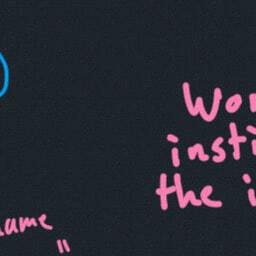 Wor
insti
the i
name
"